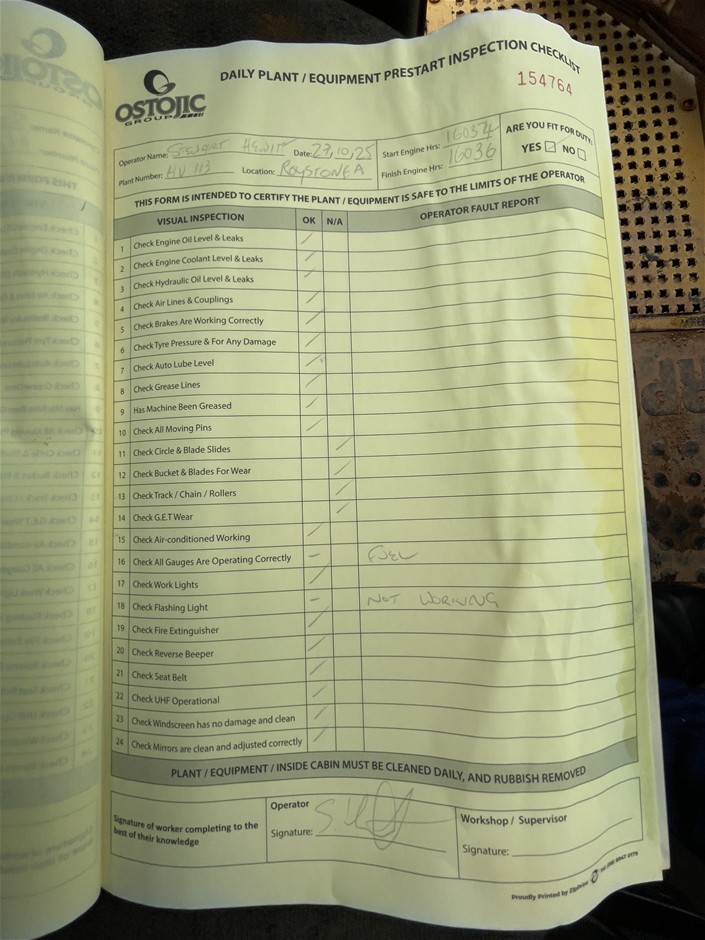 OSTOJIC
GROUP
DAILY PLANT / EQUIPMENT PRESTART INSPECTION CHECKLIST
154764
Operator Name: STEWART HEWITT Date: 29,10,25 Start Engine Hrs: 16037 ARE YOU FIT FOR DUTY:
Plant Number: HV 113 Location: Finish Engine Hrs: 16036 YES NO
THIS FORM IS INTENDED TO CERTIFY THE PLANT / EQUIPMENT IS SAFE TO THE LIMITS OF THE OPERATOR
VISUAL INSPECTION OK N/A OPERATOR FAULT REPORT
1 Check Engine Oil Level & Leaks /
2 Check Engine Coolant Level & Leaks /
3 Check Hydraulic Oil Level & Leaks /
4 Check Air Lines & Couplings /
5 Check Brakes Are Working Correctly /
6 Check Tyre Pressure & For Any Damage /
7 Check Auto Lube Level /
8 Check Grease Lines /
9 Has Machine Been Greased /
10 Check All Moving Pins /
11 Check Circle & Blade Slides /
12 Check Bucket & Blades For Wear /
13 Check Track / Chain / Rollers /
14 Check G.E.T Wear /
15 Check Air-conditioned Working /
16 Check All Gauges Are Operating Correctly – FUEL
17 Check Work Lights /
18 Check Flashing Light – NOT WORKING
19 Check Fire Extinguisher /
20 Check Reverse Beeper /
21 Check Seat Belt /
22 Check UHF Operational /
23 Check Windscreen has no damage and clean /
24 Check Mirrors are clean and adjusted correctly /
PLANT / EQUIPMENT / INSIDE CABIN MUST BE CLEANED DAILY, AND RUBBISH REMOVED
Signature of worker completing to the
best of their knowledge
Operator
Signature:
Workshop / Supervisor
Signature:
Proudly Printed by Zipform